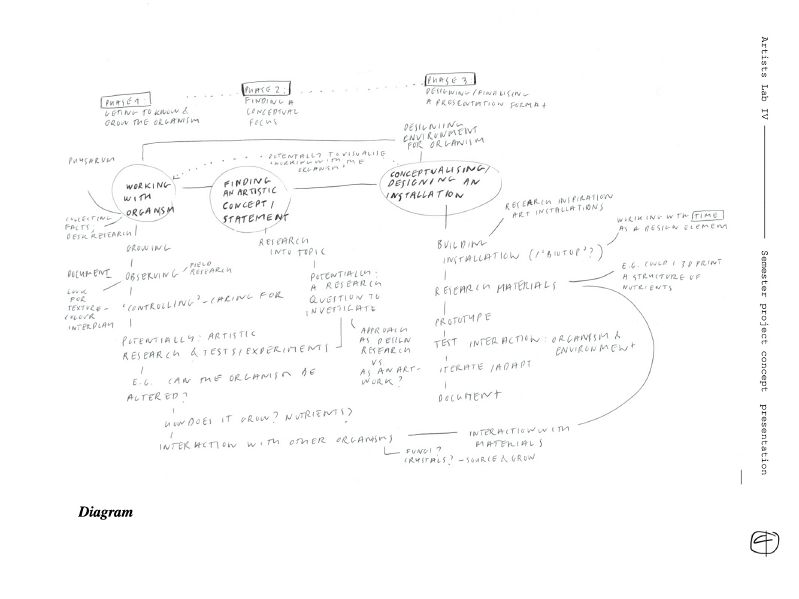 PHASE 1
GETING TO KNOW &
GROW THE ORGANISM
PHASE 2:
FINDING A
CONCEPTUAL
FOCUS
PHASE 3
DESIGNING/FINALISING
A PRESENTATION FORMAT
DESIGNIING
ENVIRONMENT
FOR ORGANISM
PHYSARUM
POTENTIALLY TO VISUALISE
WORKING WITH THE
ORGANISM
WORKING
WITH
ORGANISM
FINDING
AN ARTISTIC
CONCEPT/
STATEMENT
CONCEPTUALISING/
DESIGNING AN
INSTALLATION
COLLECTING
FACTS,
DESK RESEARCH
GROWING
DOCUMENT
OBSERVING
FIELD
RESEARCH
LOOK
FOR
TEXTURE-
COLOUR
INTERPLAY
'CONTROLLING' - CARING FOR
POTENTIALLY: ARTISTIC
RESEARCH & TESTS/EXPERIMENTS
E.G. CAN THE ORGANISM BE
ALTERED?
HOW DOES IT GROW? NUTRIENTS?
INTERACTION WITH OTHER ORGANISMS
FUNGI?
CRYSTALS? - SOURCE & GROW
INTERACTION WITH
MATERIALS
RESEARCH
INTO TOPIC
POTENTIALLY:
A RESEARCH
QUESTION TO
INVESTIGATE
APPROACH
AS DESIGN
RESEARCH
VS
AS AN ART-
WORK?
RESEARCH INSPIRATION
ART INSTALLATIONS
BUILDING
INSTALLATION ("BIOTOP"?)
WORKING WITH TIME
AS A DESIGN ELEMENT
RESEARCH MATERIALS
E.G. COULD I 3D PRINT
A STRUCTURE OF
NUTRIENTS
PROTOTYPE
TEST INTERACTION: ORGANISM &
ENVIRONMENT
ITERATE/ADAPT
DOCUMENT
Diagram
Artists Lab IV
Semester project concept presentation
4